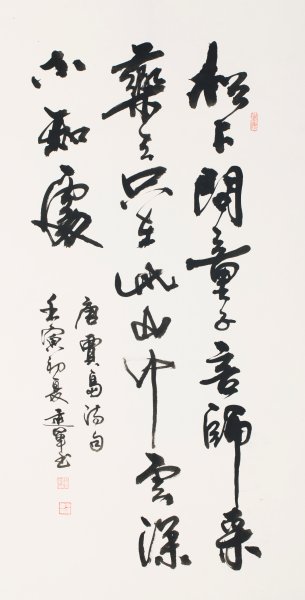 松下問童子言師采
藥去只在此山中雲深
不知處
唐賈島詩句
壬寅初夏書